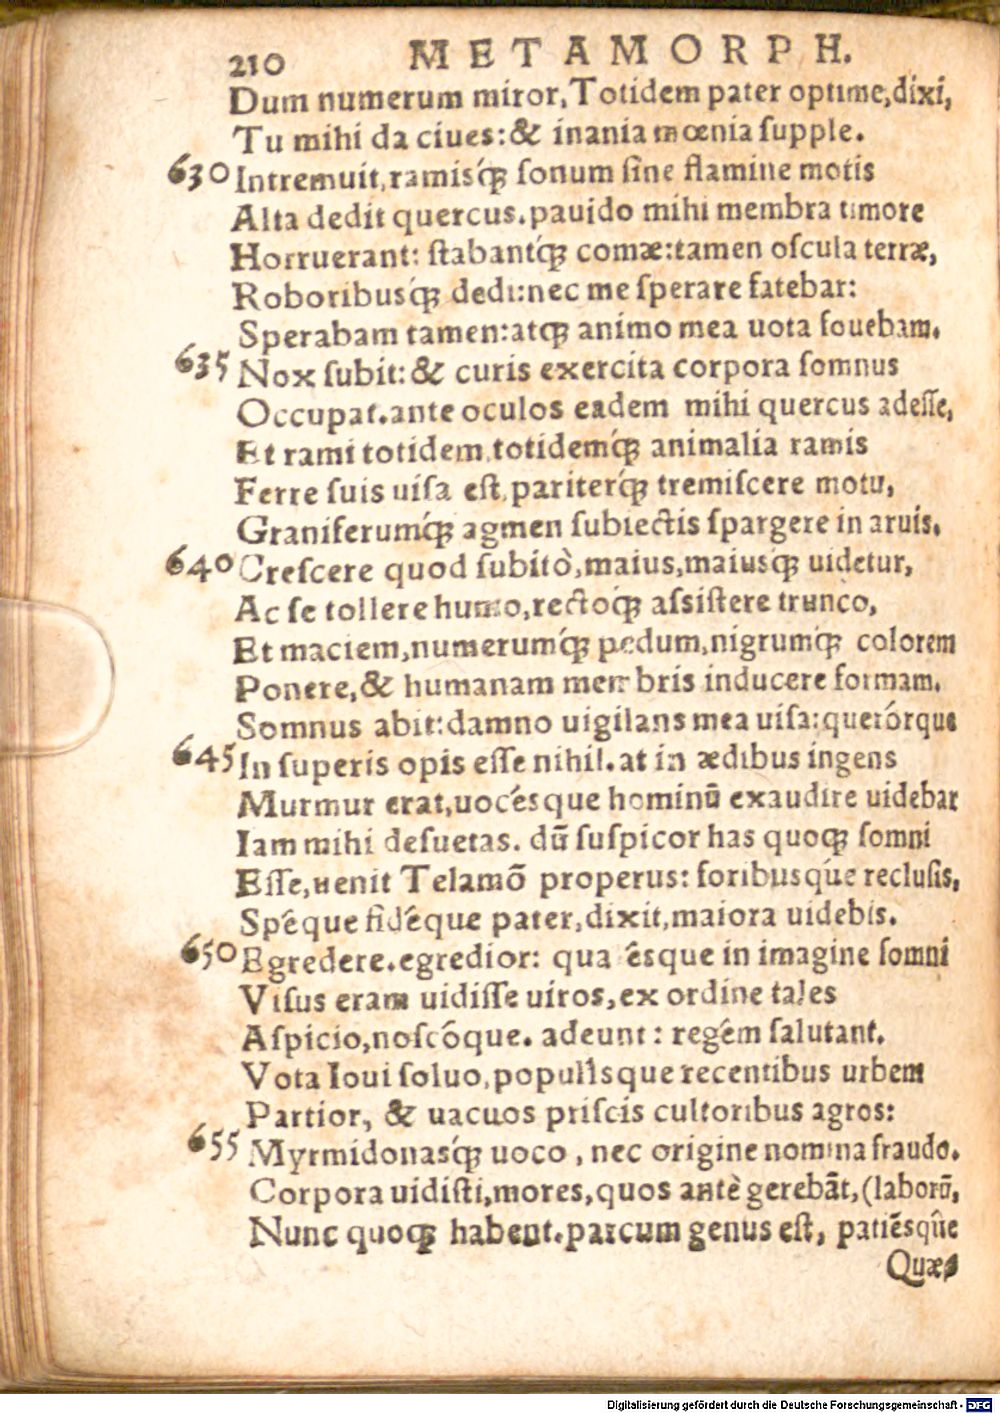 210 METAMORPH.
Dum numerum miror, Totidem pater optime, dixi,
Tu mihi da ciues: & inania mœnia supple.
630 Intremuit, ramisq́ꝫ sonum sine flamine motis
Alta dedit quercus. pauido mihi membra timore
Horruerant: stabantq́ꝫ comæ: tamen oscula terræ,
Roboribusq́ꝫ dedi: nec me sperare fatebar:
Sperabam tamen: atqꝫ animo mea uota fouebam.
635 Nox subit: & curis exercita corpora somnus
Occupat. ante oculos eadem mihi quercus adesse,
Et rami totidem, totidemq́ꝫ animalia ramis
Ferre suis uisa est, pariterq́ꝫ tremiscere motu,
Graniferumq́ꝫ agmen subiectis spargere in aruis.
640 Crescere quod subitò, maius, maiusqꝫ uidetur,
Ac se tollere humo, rectoq́ꝫ assistere trunco,
Et maciem, numerumq́ꝫ pedum, nigrumq́ꝫ colorem
Ponere, & humanam membris inducere formam.
Somnus abit: damno uigilans mea uisa: querórque
645 In superis opis esse nihil. at in ædibus ingens
Murmur erat, uocésque hominū exaudire uidebar
Iam mihi desuetas. dū suspicor has quoqꝫ somni
Esse, uenit Telamō properus: foribusque reclusis,
Spéque fidéque pater, dixit, maiora uidebis.
650 Egredere. egredior: qualésque in imagine somni
Visus eram uidisse uiros, ex ordine tales
Aspicio, noscóque. adeunt: regém salutant.
Vota Ioui soluo, populísque recentibus urbem
Partior, & uacuos priscis cultoribus agros:
655 Myrmidonasq́ꝫ uoco, nec origine nomina fraudo.
Corpora uidisti, mores, quos antè gerebāt, (laborū,
Nunc quoqꝫ habent. parcum genus est, patiēsq̄ue
Quæ-
Digitalisierung gefördert durch die Deutsche Forschungsgemeinschaft - DFG